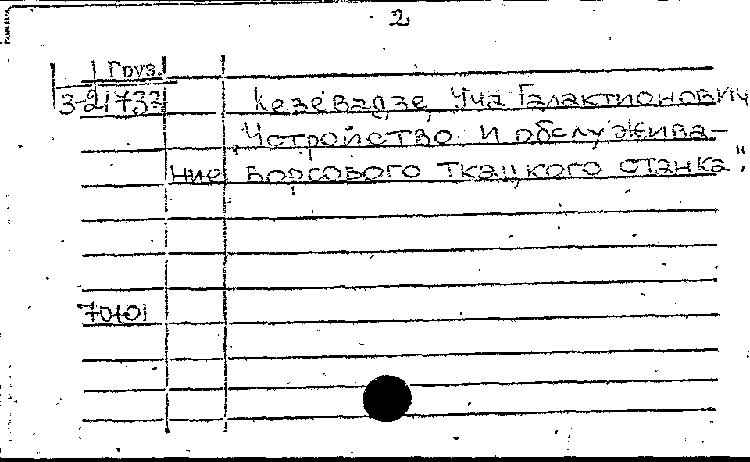 2
Груз.
3-21733
Кезевадзе, Уча Галактионович
„Устройство и обслужива-
ние ворсового ткацкого станка".
70101